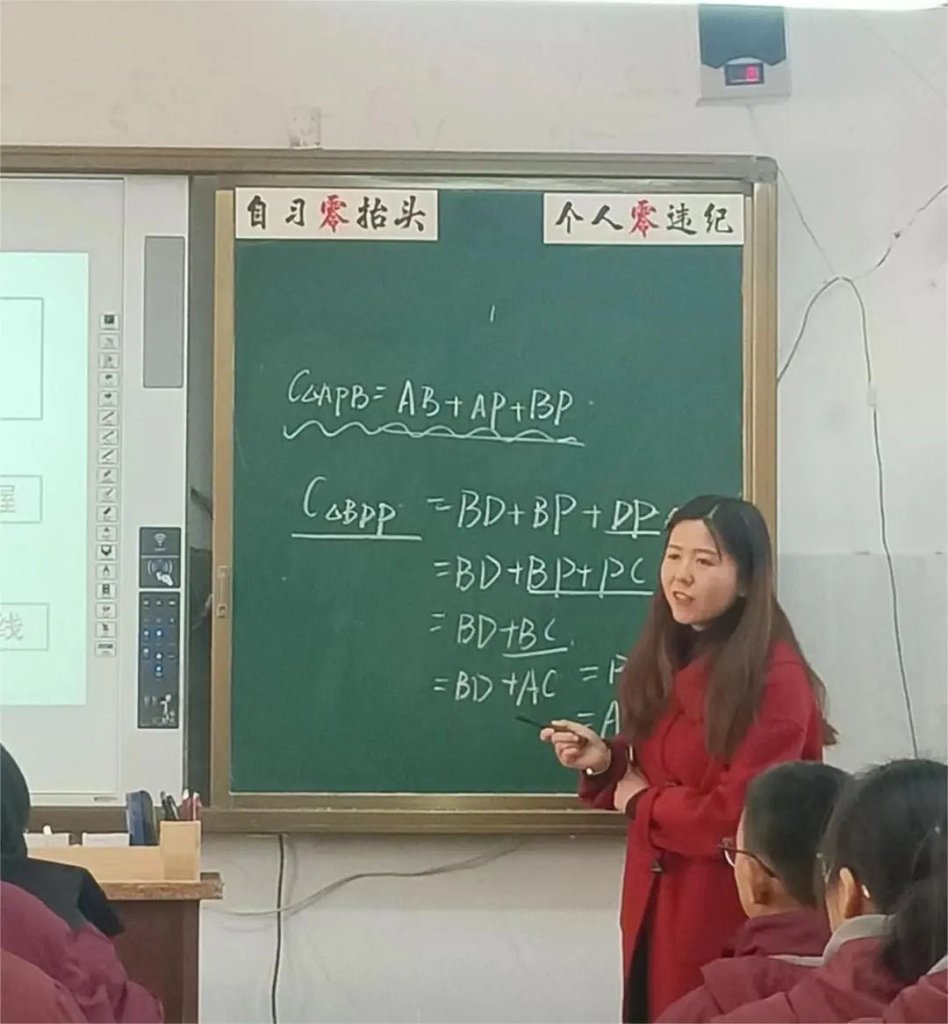 自习零抬头
个人零违纪
C△APB=AB+AP+BP
C△BDP=BD+BP+DP
=BD+BP+PC
=BD+BC
=BD+AC
=
=A
屋
线